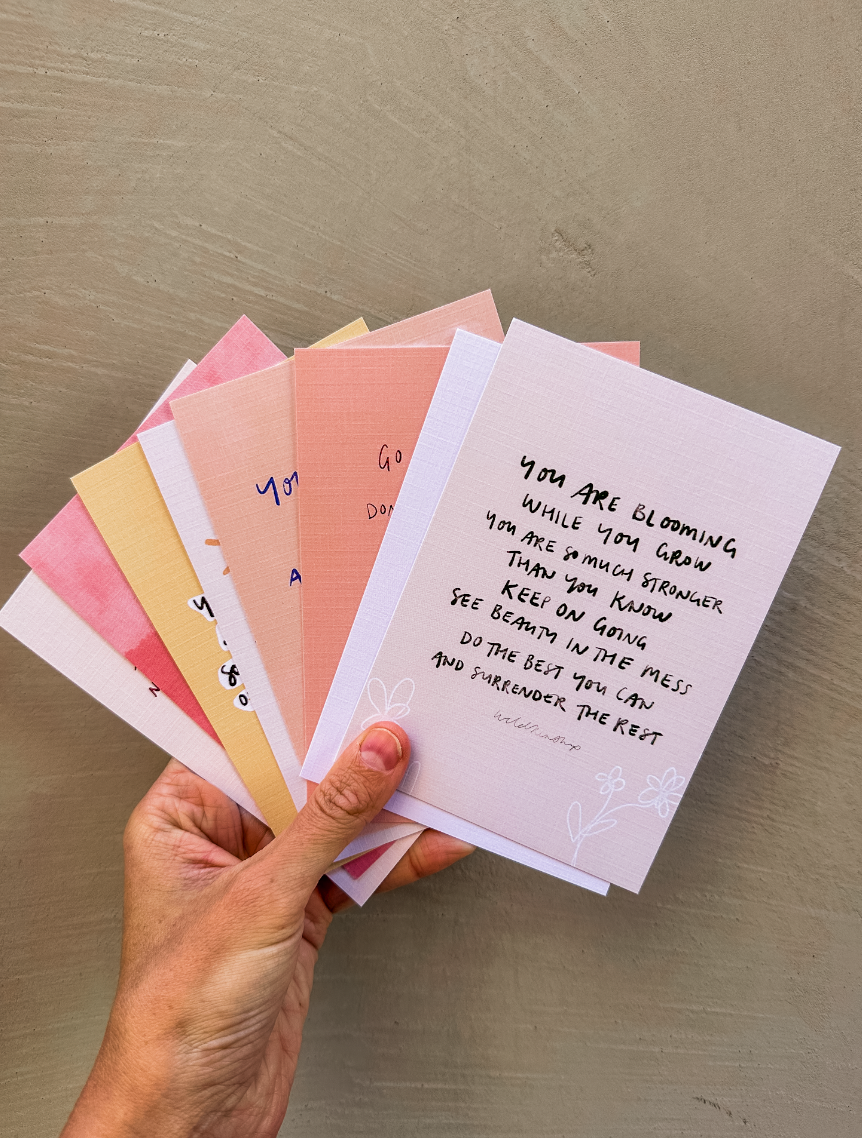 YOU ARE BLOOMING
WHILE YOU GROW
YOU ARE SO MUCH STRONGER
THAN YOU KNOW
KEEP ON GOING
SEE BEAUTY IN THE MESS
DO THE BEST YOU CAN
AND SURRENDER THE REST
wildkinship
GO